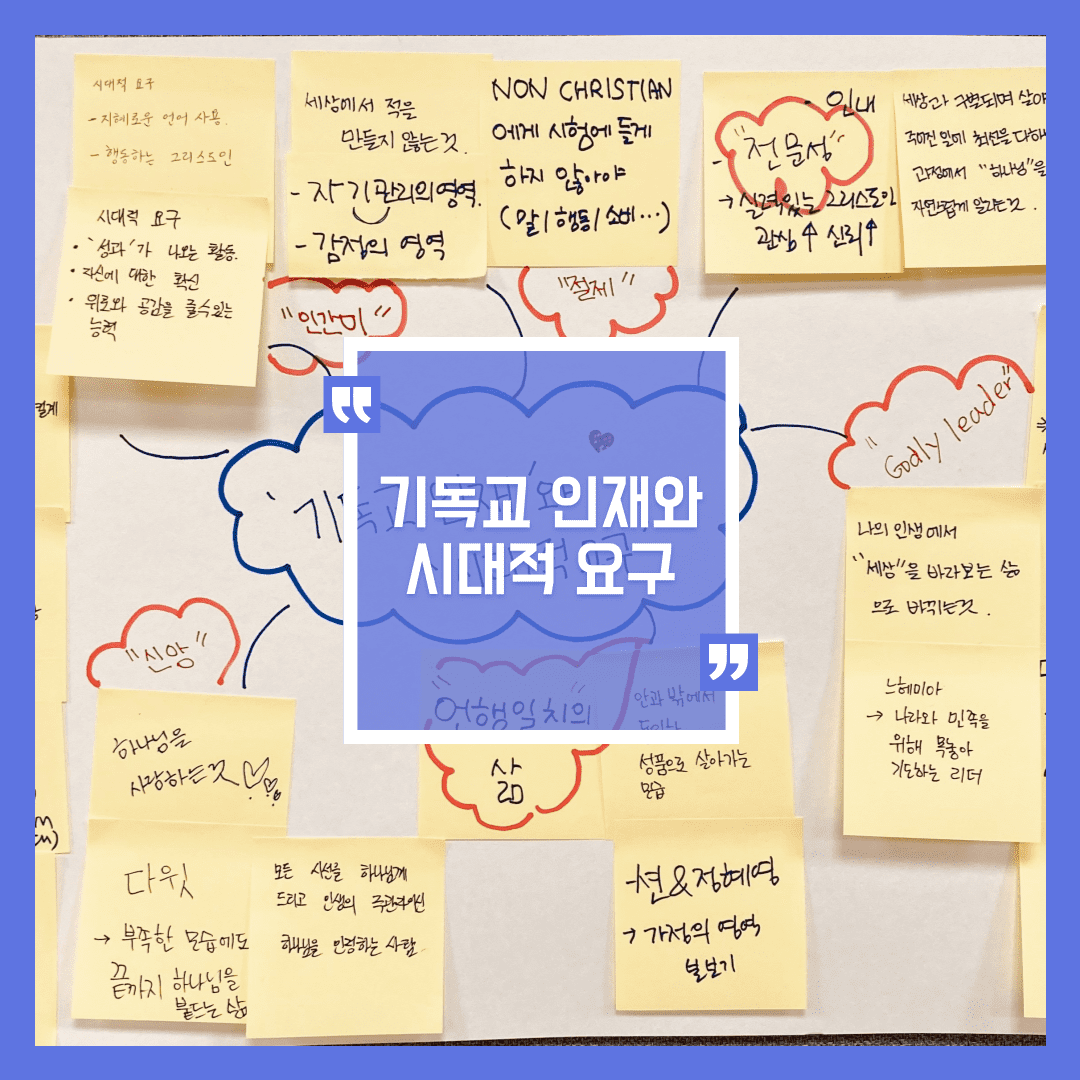 시대적 요구
- 지혜로운 언어 사용.
- 행동하는 그리스도인
시대적 요구
• '성과'가 나오는 활동.
• 자신에 대한 확신
• 위로와 공감을 줄수있는
능력
세상에서 적을
만들지 않는 것.
- 자기관리의 영역.
- 감정의 영역
NON CHRISTIAN
에게 시험에 들게
하지 않아야
(말/행동/소비…)
- 인내
- "전문성"
→ 실력있는 그리스도인
관심↑ 신뢰↑
세상과 구별되며 살아
주어진 일에 최선을 다하
과정에서 "하나님"을
자연스럽게 알리는것.
"인간미"
"절제"
"Godly leader"
기독교 인재와
시대적 요구
나의 인생에서
"세상"을 바라보는 삶
으로 바뀌는것.
느헤미야
→ 나라와 민족을
위해 목놓아
기도하는 리더
"신앙"
하나님을
사랑하는것♡
다윗
→ 부족한 모습에도
끝까지 하나님을
붙드는 삶
모든 시선을 하나님께
드리고 인생의 주관자이신
하나님을 인정하는 사람.
"언행일치의"
삶
안과 밖에서
성품으로 살아가는
모습
- 션&정혜영
→ 가정의 영역
돌보기